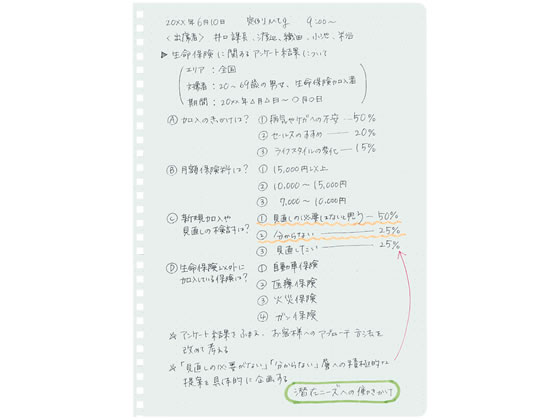 20XX年6月10日 定例Mtg 9:00〜
〈出席者〉 井口課長、渡辺、織田、小池、米谷
▶ 生命保険に関するアンケート結果について
エリア：全国
対象者：20〜69歳の男女、生命保険加入者
期間：20XX年△月△日〜○月○日
Ⓐ 加入のきっかけは？ ① 病気やケガへの不安 — 50%
② セールスのすすめ — 20%
③ ライフスタイルの変化 — 15%
Ⓑ 月額保険料は？ ① 15,000円以上
② 10,000〜15,000円
③ 7,000〜10,000円
Ⓒ 新規加入や ① 見直しの必要はないと思う — 50%
見直しの検討は？ ② 分からない — 25%
③ 見直したい — 25%
Ⓓ 生命保険以外に ① 自動車保険
加入している保険は？ ② 医療保険
③ 火災保険
④ ガン保険
☆ アンケート結果をふまえ、お客様へのアプローチ方法を
改めて考える
☆ 「見直しの必要がない」「分からない」層への積極的な
提案を具体的に企画する
潜在ニーズへの働きかけ